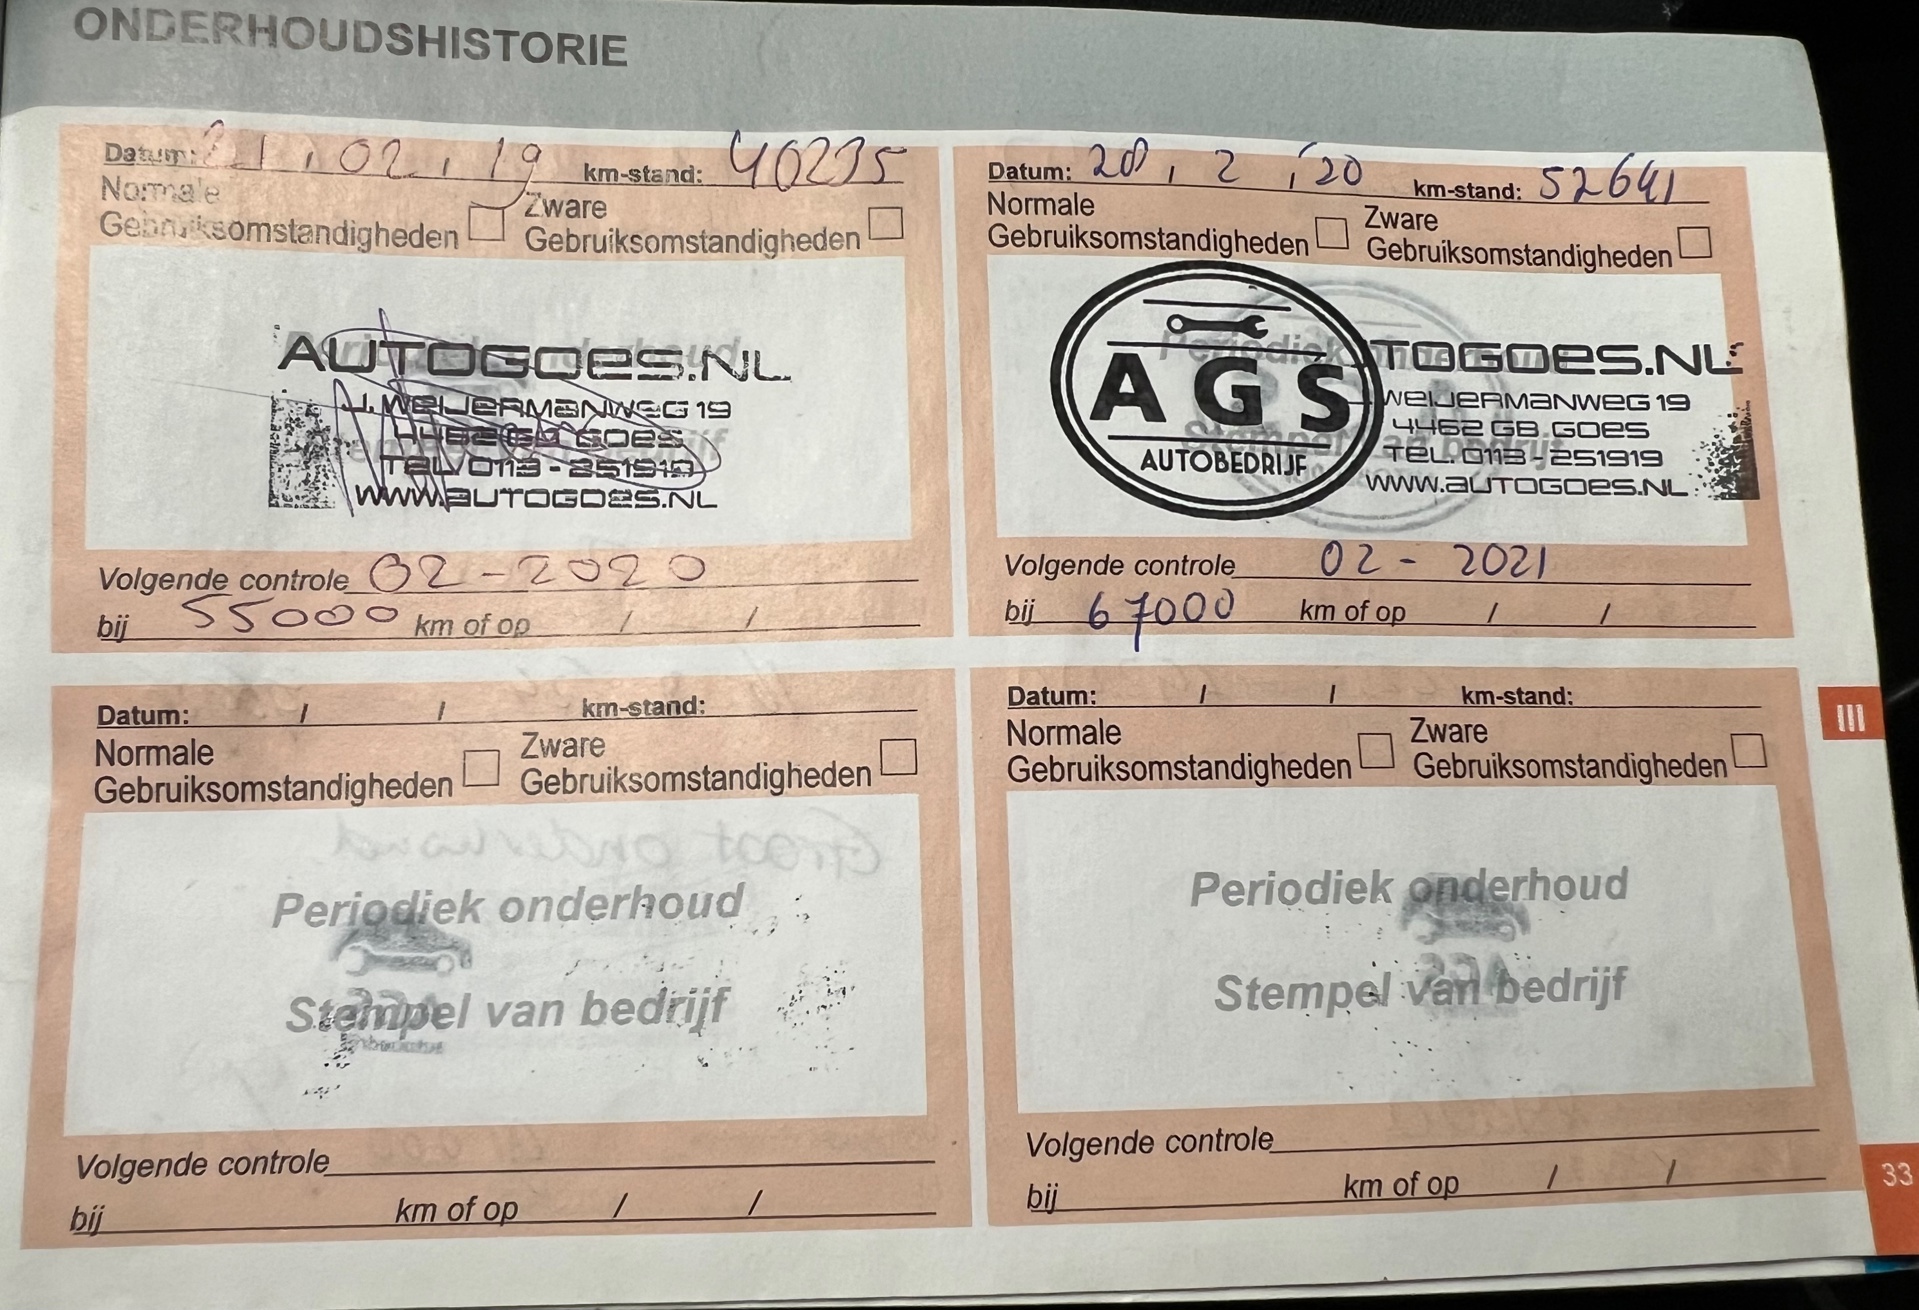 ONDERHOUDSHISTORIE
Datum: 21 / 02 / 19 km-stand: 40235
Normale Gebruiksomstandigheden
Zware Gebruiksomstandigheden
AUTOGOES.NL
J. WEIJERMANWEG 19
4462 GB GOES
TEL. 0113 - 251919
WWW.AUTOGOES.NL
Volgende controle 02 - 2020
bij 55000 km of op / /
Datum: 28 / 2 / '20 km-stand: 52641
Normale Gebruiksomstandigheden
Zware Gebruiksomstandigheden
Periodiek
Stempel van bedrijf
AGS
AUTOBEDRIJF
TOGOES.NL
WEIJERMANWEG 19
4462 GB GOES
TEL. 0113 - 251919
WWW.AUTOGOES.NL
Volgende controle 02 - 2021
bij 67000 km of op / /
Datum: / / km-stand:
Normale Gebruiksomstandigheden
Zware Gebruiksomstandigheden
Periodiek onderhoud
Stempel van bedrijf
Volgende controle
bij km of op / /
Datum: / / km-stand:
Normale Gebruiksomstandigheden
Zware Gebruiksomstandigheden
Periodiek onderhoud
Stempel van bedrijf
Volgende controle
bij km of op / /
III
33